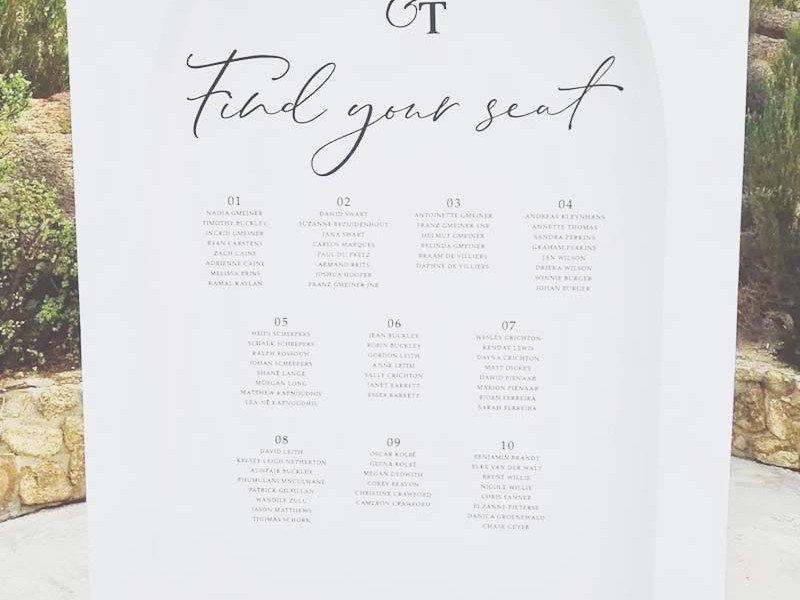 &T
Find your seat
01
NADIA GMEINER
TIMOTHY BUCKLEY
INGRID GMEINER
RYAN CARSTENS
ZACH CAINE
ADRIENNE CAINE
MELISSA PRINS
KAMAL KAYLAN
02
DAWID SWART
SUZANNE BEZUIDENHOUT
JANA SWART
CARLOS MARQUES
PAUL DU PREEZ
ARMAND BRITS
JOSHUA HOOPER
FRANZ GMEINER JNR
03
ANTOINETTE GMEINER
FRANZ GMEINER SNR
HELMUT GMEINER
BELINDA GMEINER
BRAAM DE VILLIERS
DAPHNE DE VILLIERS
04
ANDREAS KLEYNHANS
ANNETTE THOMAS
SANDRA PERKINS
GRAHAM PERKINS
JAN WILSON
DRIEKA WILSON
WINNIE BURGER
JOHAN BURGER
05
HEIDI SCHEEPERS
SCHALK SCHEEPERS
RALPH ROSSOUW
JOHAN SCHEEPERS
SHANÉ LANGE
MORGAN LONG
MATTHEW KAPNOUDHIS
LEA-NÉ KAPNOUDHIS
06
JEAN BUCKLEY
ROBIN BUCKLEY
GORDON LEITH
ANNE LEITH
SALLY CRICHTON
JANET BARRETT
ESSEX BARRETT
07
WESLEY CRICHTON
KENDAL LEWIS
DAYNA CRICHTON
MATT DICKEY
DAWID PIENAAR
MARION PIENAAR
BJORN FERREIRA
SARAH FERREIRA
08
DAVID LEITH
KELSEY LEIGH NETHERTON
ALISTAIR BUCKLES
PHUMULANI MNCULWANE
PATRICK GILFILLAN
WANDILE ZULU
JASON MATTHEWS
THOMAS SCHORN
09
OSCAR KOLBÉ
GEENA KOLBÉ
MEGAN DEDWITH
COREY REAVON
CHRISTINE CRAWFORD
CAMERON CRAWFORD
10
BENJAMIN BRANDT
ELKE VAN DER WALT
BRENT WILLIE
NICOLE WILLIE
CHRIS FANNER
ELZANNE PIETERSE
DANICA GROENEWALD
CHASE GEYER